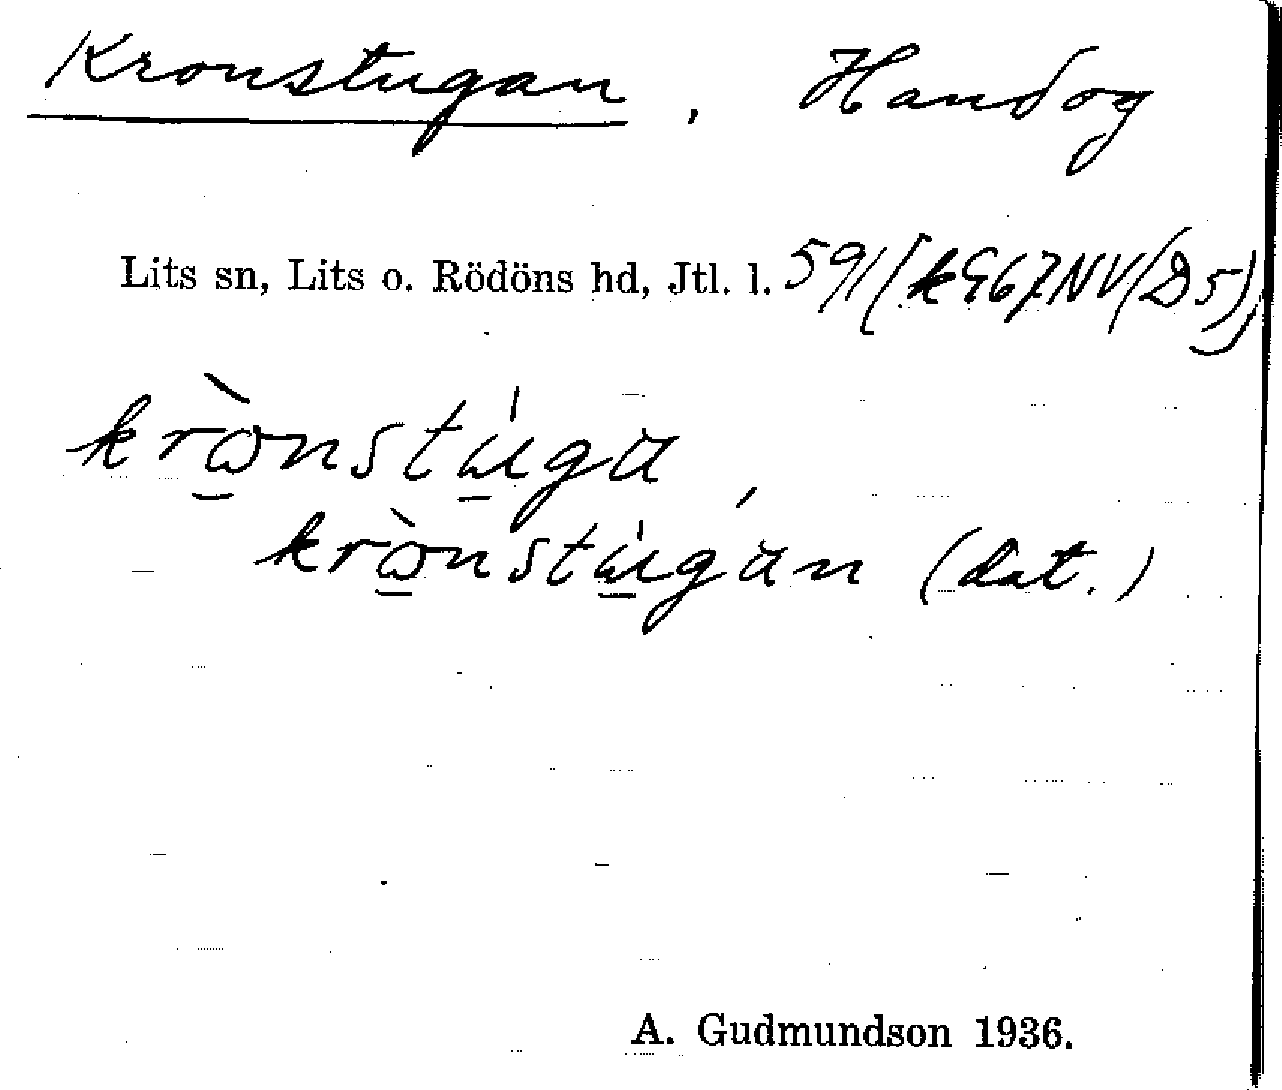 Kronstugan, Handog
Lits sn, Lits o. Rödöns hd, Jtl. l. 591 (k967NV(D5))
krònstúga,
krònstúgan (dat.)
A. Gudmundson 1936.